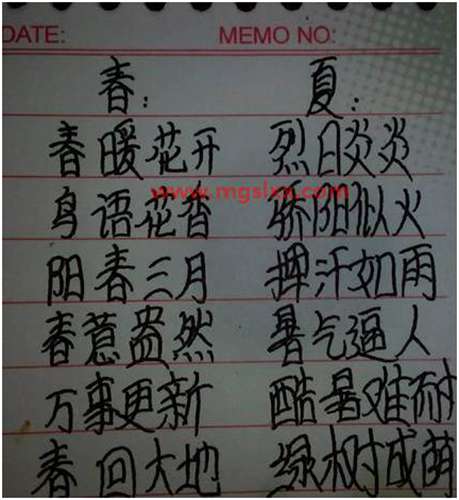 DATE: MEMO NO:
春: 夏:
春暖花开 烈日炎炎
www.mgslxx.com
鸟语花香 骄阳似火
阳春三月 挥汗如雨
春意盎然 暑气逼人
万事更新 酷暑难耐
春回大地 绿树成荫